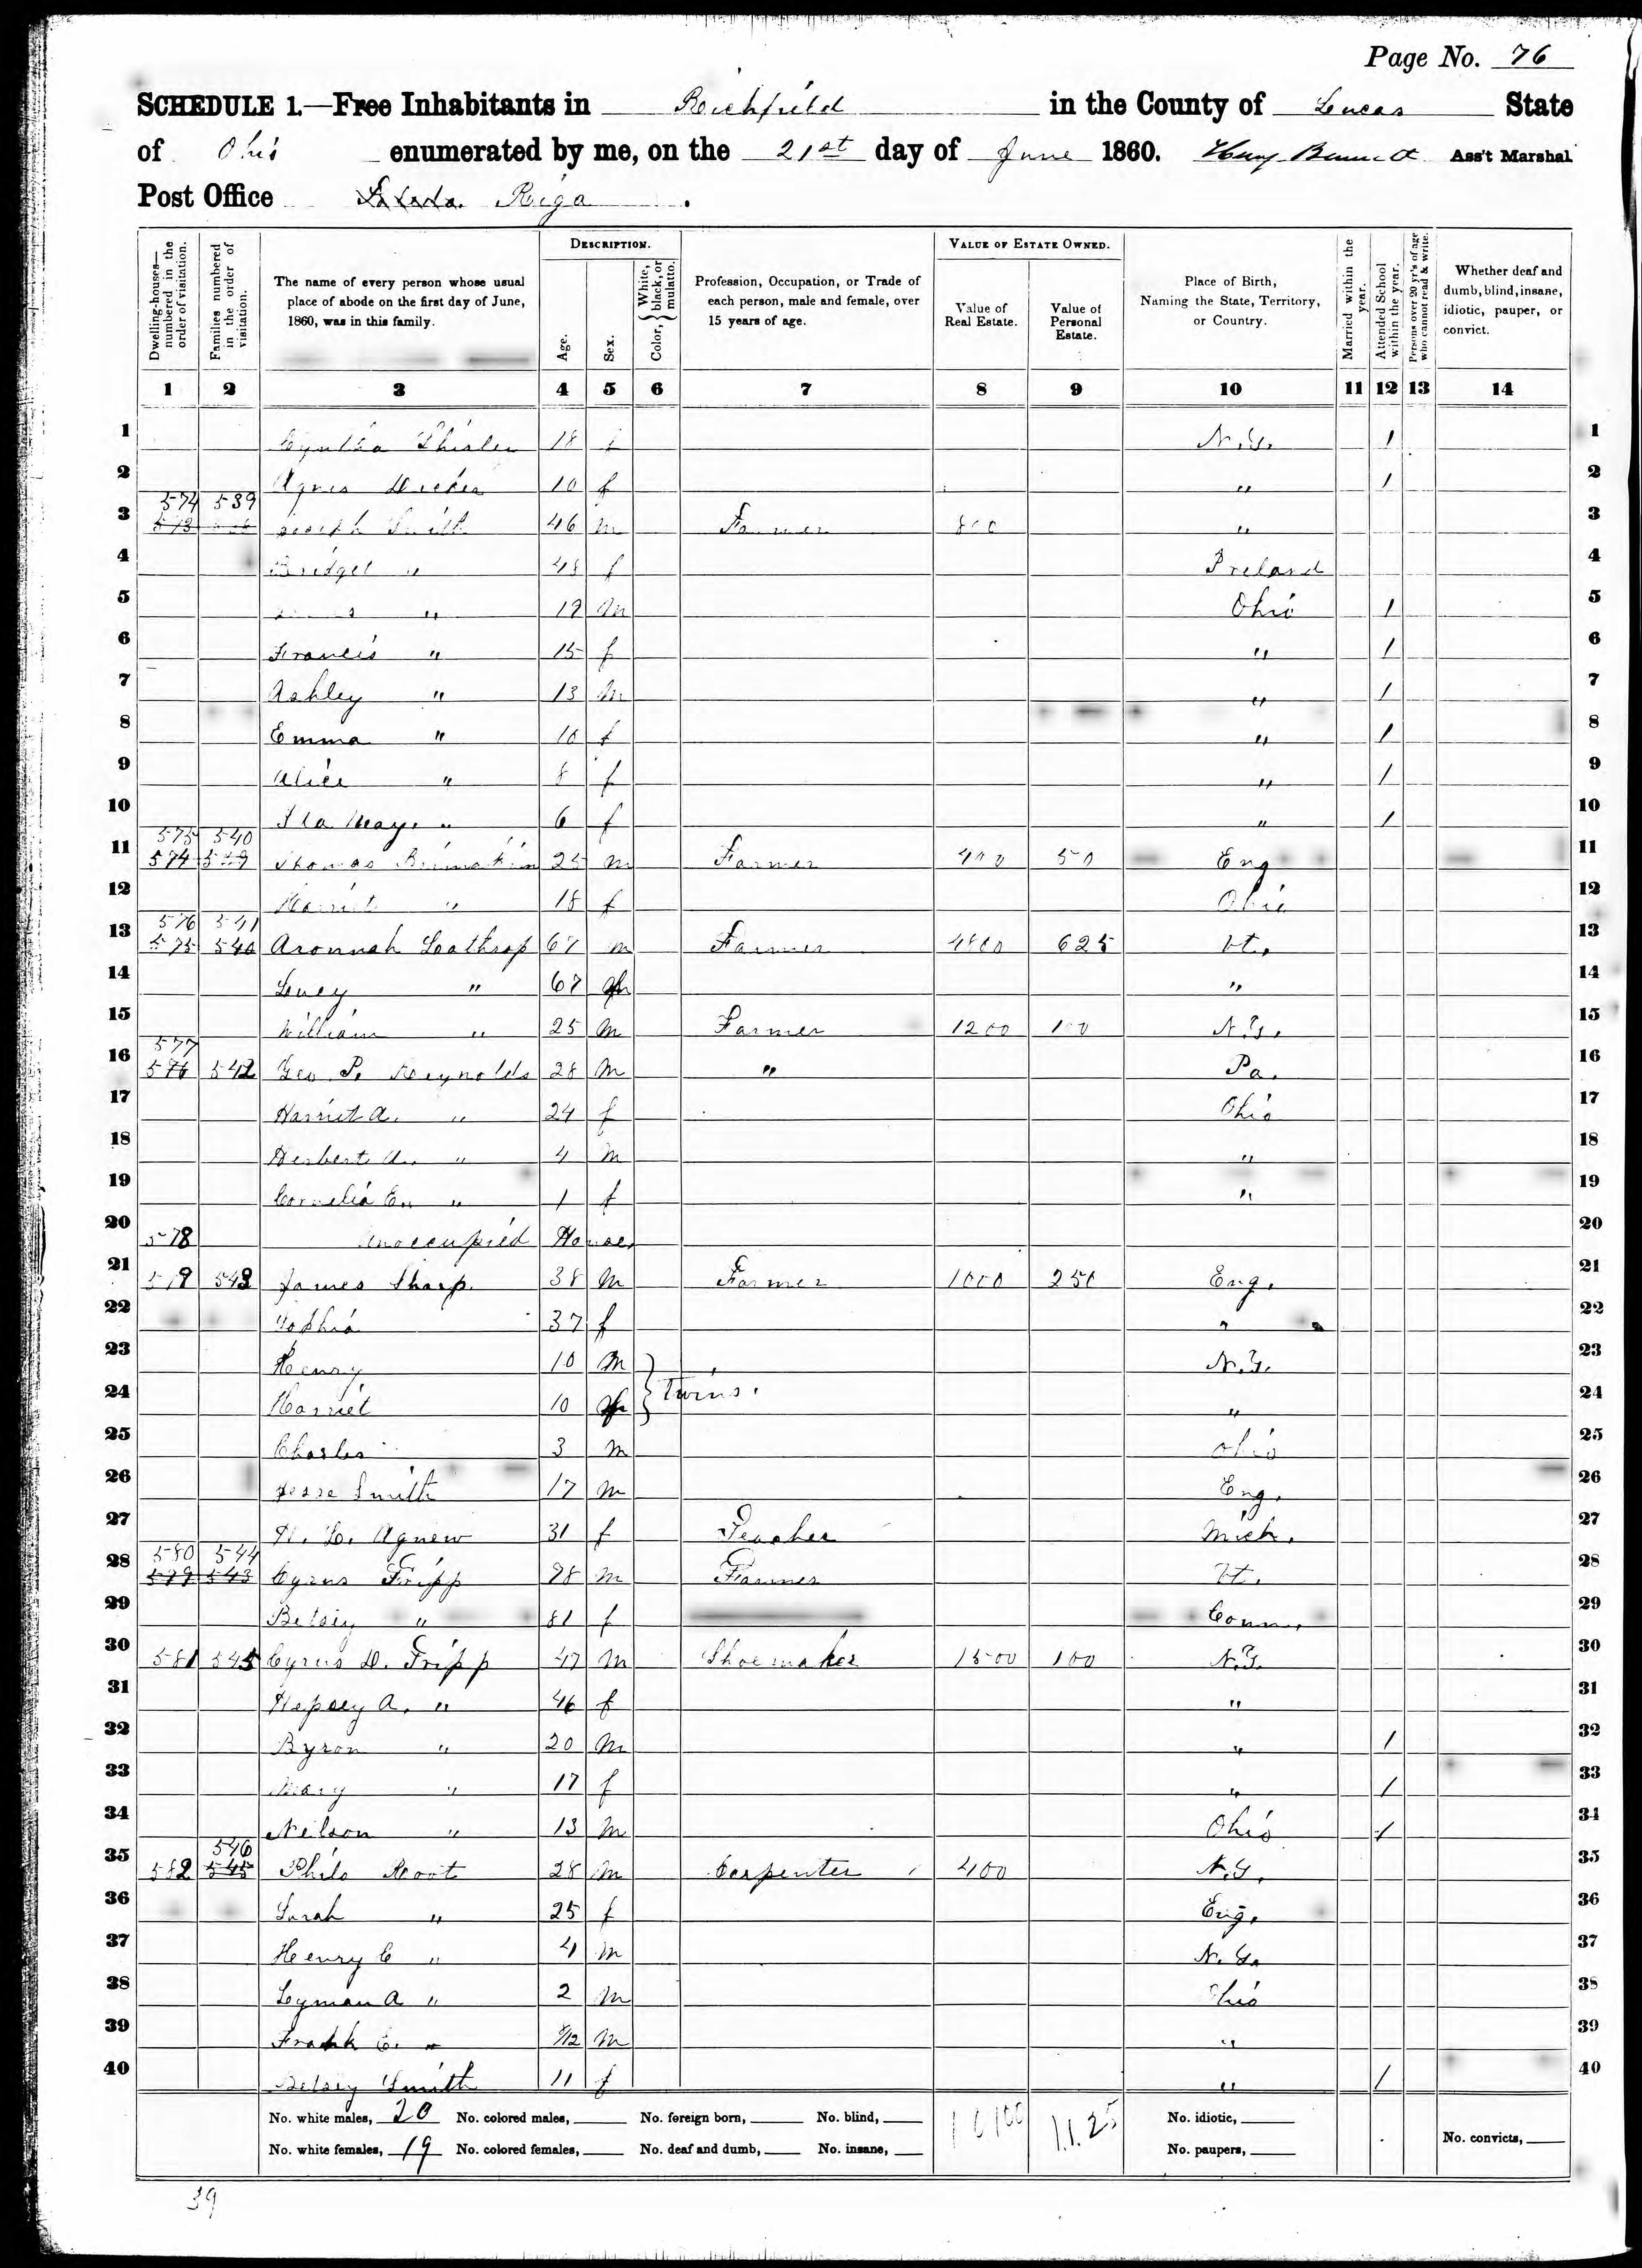 Page No. 76
SCHEDULE 1.—Free Inhabitants in Richfield in the County of Lucas State
of Ohio enumerated by me, on the 21st day of June 1860. Ass't Marshal
Post Office Riga.
Dwelling-houses—numbered in the order of visitation.
Families numbered in the order of visitation.
The name of every person whose usual place of abode on the first day of June, 1860, was in this family.
DESCRIPTION.
Age.
Sex.
Color, { White, black, or mulatto.
Profession, Occupation, or Trade of each person, male and female, over 15 years of age.
VALUE OF ESTATE OWNED.
Value of Real Estate.
Value of Personal Estate.
Place of Birth, Naming the State, Territory, or Country.
Married within the year.
Attended School within the year.
Persons over 20 yr's of age who cannot read & write.
Whether deaf and dumb, blind, insane, idiotic, pauper, or convict.
1 2 3 4 5 6 7 8 9 10 11 12 13 14
1 Cyntha 18 N.Y. 1 1
2 Agnes 10 f " 1 2
574 539
3 573 Joseph Smith 46 m Farmer 800 " 3
4 Bridget " 48 f Ireland 4
5 " 19 m Ohio 1 5
6 Francis " 15 f " 1 6
7 Ashley " 13 m " 1 7
8 Emma " 10 f " 1 8
9 Alice " 8 f " 1 9
10 Ila May. " 6 f " 1 10
575 540
11 574 539 Thomas 25 m Farmer 400 50 Eng 11
12 Harriet " 18 f Ohio 12
576 541
13 575 540 Aronnah Loathrop 67 m Farmer 4800 625 Vt. 13
14 Lucy " 67 f " 14
15 William " 25 m Farmer 1200 100 N.Y. 15
577
16 576 542 Geo. P. Reynolds 28 m " Pa. 16
17 Harriet A. " 24 f Ohio 17
18 Herbert A. " 4 m " 18
19 Cornelia E. " 1 f " 19
20 578 Unoccupied House. 20
21 579 543 James Sharp. 38 m Farmer 1000 250 Eng. 21
22 Sophia 37 f " 22
23 Henry 10 m } N.Y. 23
24 Harriet 10 f } Twins. " 24
25 Charles 3 m Ohio 25
26 Jesse Smith 17 m Eng. 26
27 H. L. Agnew 31 f Teacher Mich. 27
580 544
28 579 543 Cyrus Fripp 78 m Farmer Vt. 28
29 Betsey " 81 f Conn. 29
30 581 545 Cyrus D. Fripp 47 m Shoemaker 1500 100 N.Y. 30
31 Hepsey A. " 46 f " 31
32 Byron " 20 m " 1 32
33 Mary " 17 f " 1 33
34 Nelson " 13 m Ohio 1 34
546
35 582 545 Philo Root 28 m Carpenter 400 N.Y. 35
36 Sarah " 25 f Eng. 36
37 Henry C " 4 m N.Y. 37
38 Lyman A " 2 m Ohio 38
39 Frank C. " m " 39
40 Betsey Smith 11 f " 1 40
No. white males, 20 No. colored males, No. foreign born, No. blind, 10100 1125 No. idiotic,
No. white females, 19 No. colored females, No. deaf and dumb, No. insane, No. paupers, No. convicts,
39